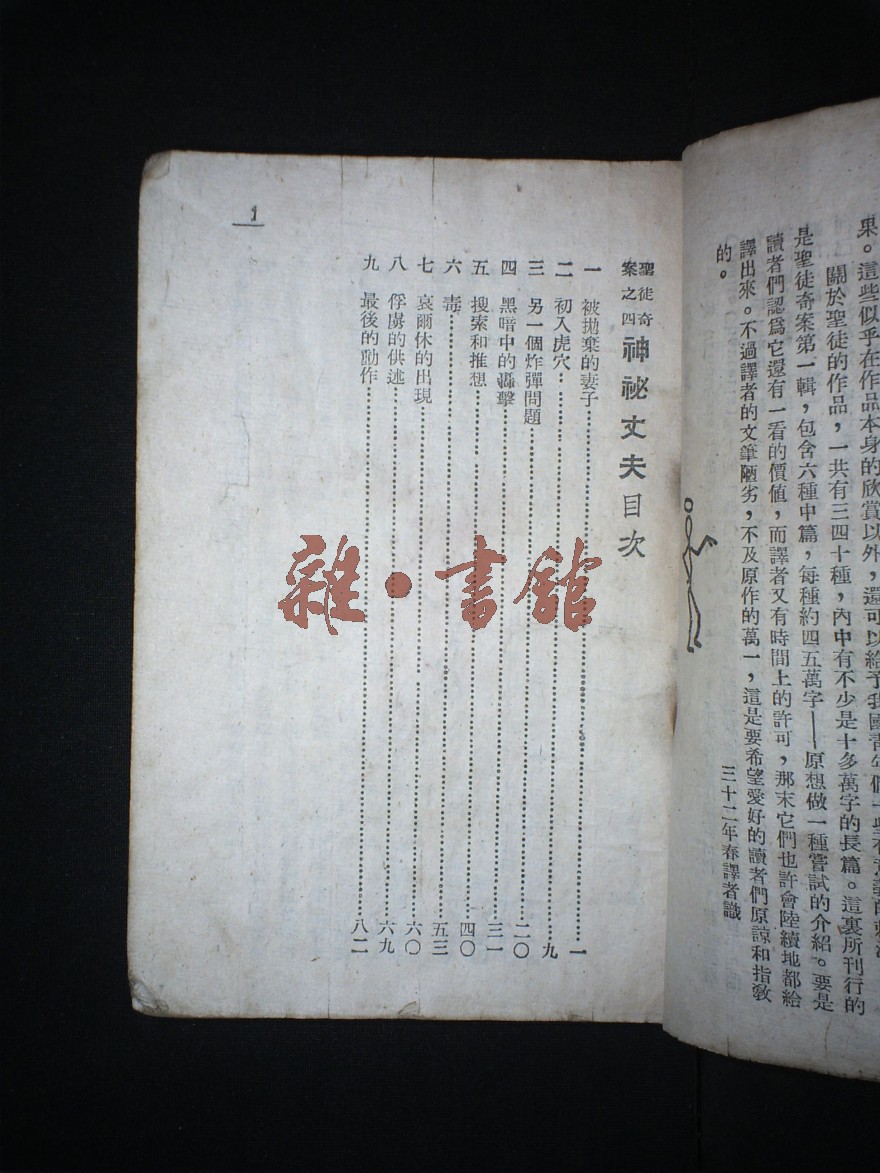 果。這些似乎在作品本身的欣賞以外，還可以給予我國青年們一些有意義的
關於聖徒的作品，一共有三四十種，內中有不少是十多萬字的長篇。這裏所刊行的
是聖徒奇案第一輯，包含六種中篇，每種約四五萬字——原想做一種嘗試的介紹。要是
讀者們認爲它還有一看的價値，而譯者又有時間上的許可，那末它們也許會陸續地都給
譯出來。不過譯者的文筆陋劣，不及原作的萬一，這是要希望愛好的讀者們原諒和指敎
的。
三十二年春譯者識
聖徒奇案之四 神祕丈夫目次
一 被拋棄的妻子 一
二 初入虎穴 九
三 另一個炸彈問題 二〇
四 黑暗中的轟擊 三一
五 搜索和推想 四〇
六 毒 五三
七 哀爾休的出現 六〇
八 俘虜的供述 六九
九 最後的動作 八二
1
雜·書館